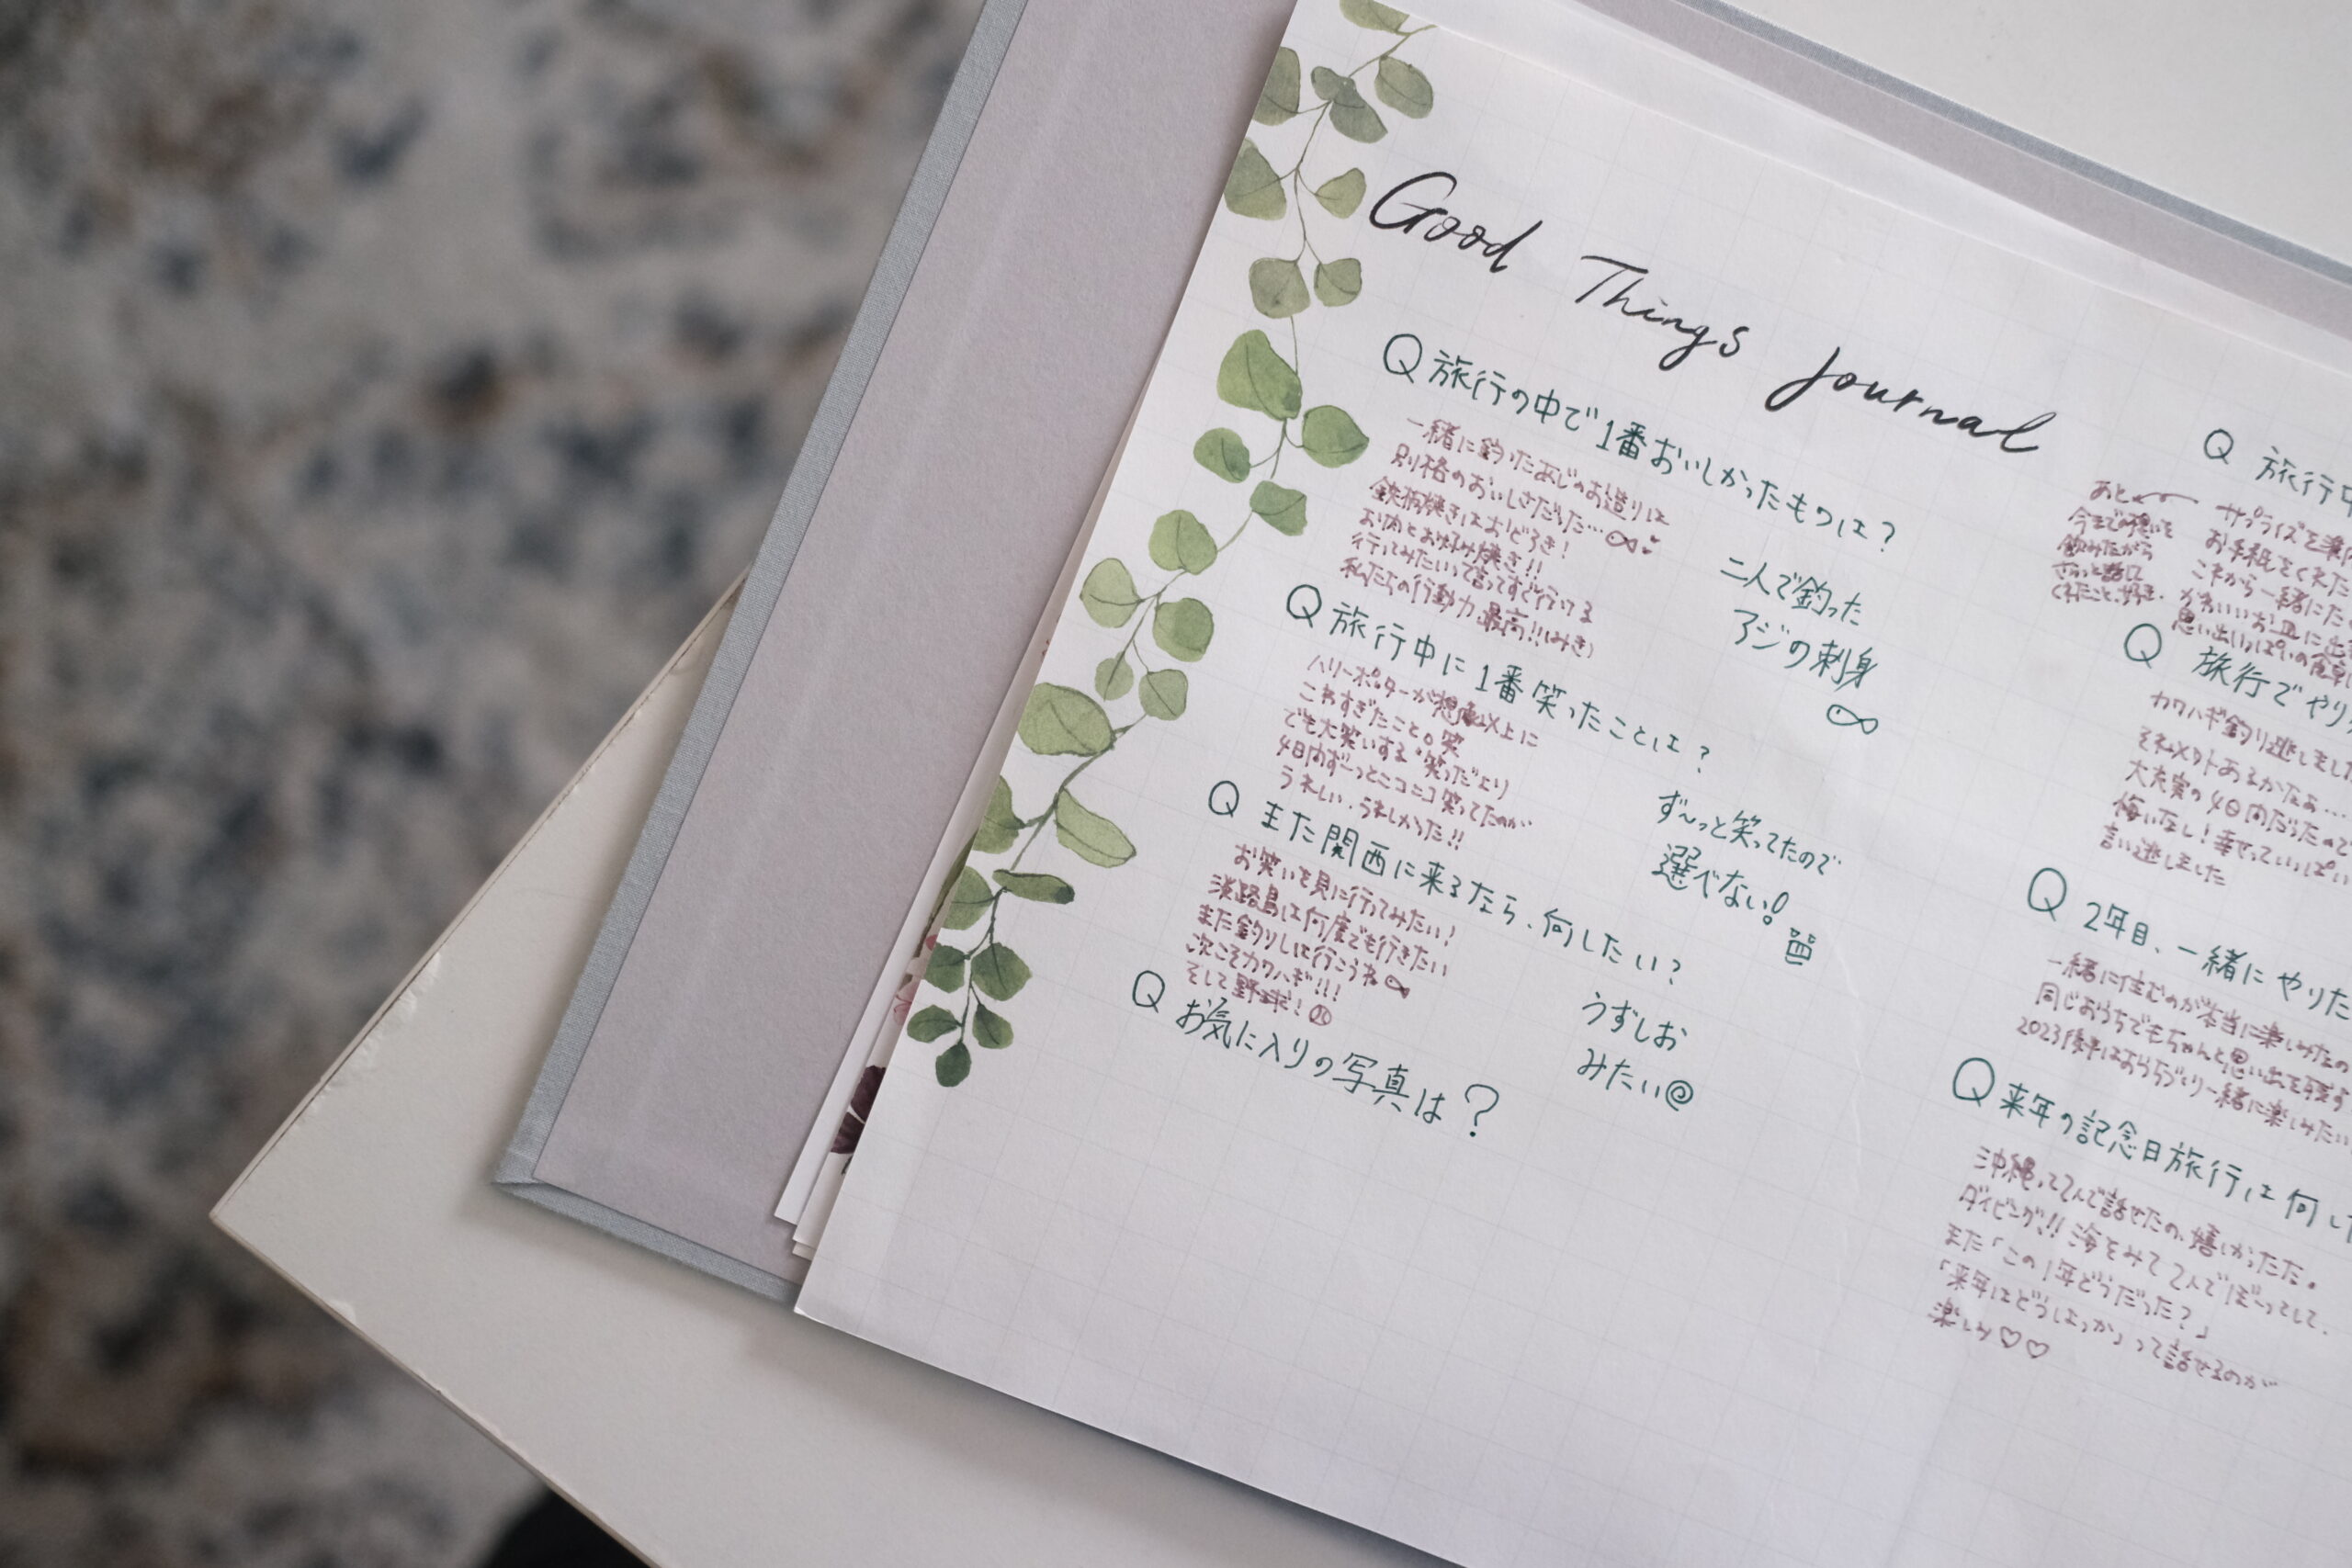 Good Things Journal
Q 旅行の中で1番おいしかったものは？
一緒に釣ったあじのお造りは
別格のおいしさだった…
鉄板焼きはおどろき！
お肉とお好み焼き!!
行ってみたいって言ってすぐ行ける
私たちの行動力、最高!!（みき）
二人で釣った
アジの刺身
Q 旅行中に1番笑ったことは？
ハリーポッターが想像以上に
こわすぎたこと。笑
でも大笑いする"笑った"より
4日内ずーっとニコニコ笑ってたのが
うれしい、うれしかった!!
ず〜っと笑ってたので
選べない！
Q また関西に来るなら、何したい？
お笑いを見に行ってみたい！
淡路島は何度でも行きたい
また釣りしに行こうね
次こそカワハギ!!!
そして野球！
うずしお
みたい@
Q お気に入りの写真は？
Q 旅行中
サプライズを準
お手紙をくれた
これから一緒にた
かわいいお皿に
思い出いっぱいの食卓
あと
今までの想いを
飲みながら
くれたこと、好き。
Q 旅行でやり
カワハギ釣り逃しました
それ以外あるかなぁ…
大充実の4日内だったので
悔いなし！幸せっていっぱい
言い逃しました
Q 2年目、一緒にやりた
一緒に住むのが本当に楽しみなの
同じおうちでもちゃんと思い出を残す
2023後半はおうちづくり一緒に楽しみたい
Q 来年の記念日旅行は何し
沖縄って2人で話せたの、嬉しかった。
ダイビング!! 海をみて2人でぼーってして、
また「この1年どうだった？」
「来年はどうしよっか」って話せるのが
楽しみ♡♡